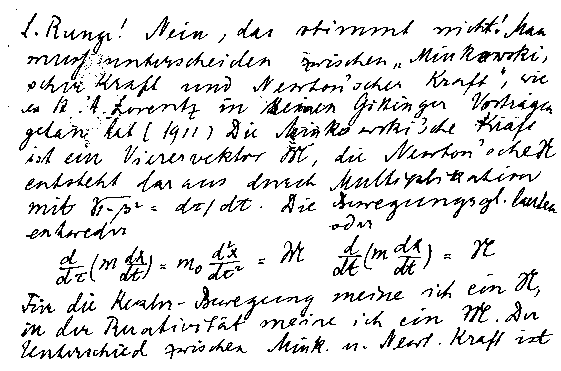 L. Runge! Nein, das stimmt nicht! Man
muss unterscheiden zwischen „Minkowski'
scher Kraft und Newton'scher Kraft", wie
es H. A. Lorentz in seinen Göttinger Vorträgen
getan hat (1911) Die Minkowski'sche Kraft
ist ein Vierervektor M, die Newton'sche N
entsteht daraus durch Multiplikation
mit √1-β² = dτ/dt. Die Bewegungsgl. lauten
entweder oder
d/dτ (m dx/dt) = m₀ d²x/dτ² = M d/dt (m dx/dt) = N
Für die Kepler-Bewegung meine ich ein N,
in der Relativität meine ich ein M. Der
Unterschied zwischen Mink. u. Newt. Kraft ist